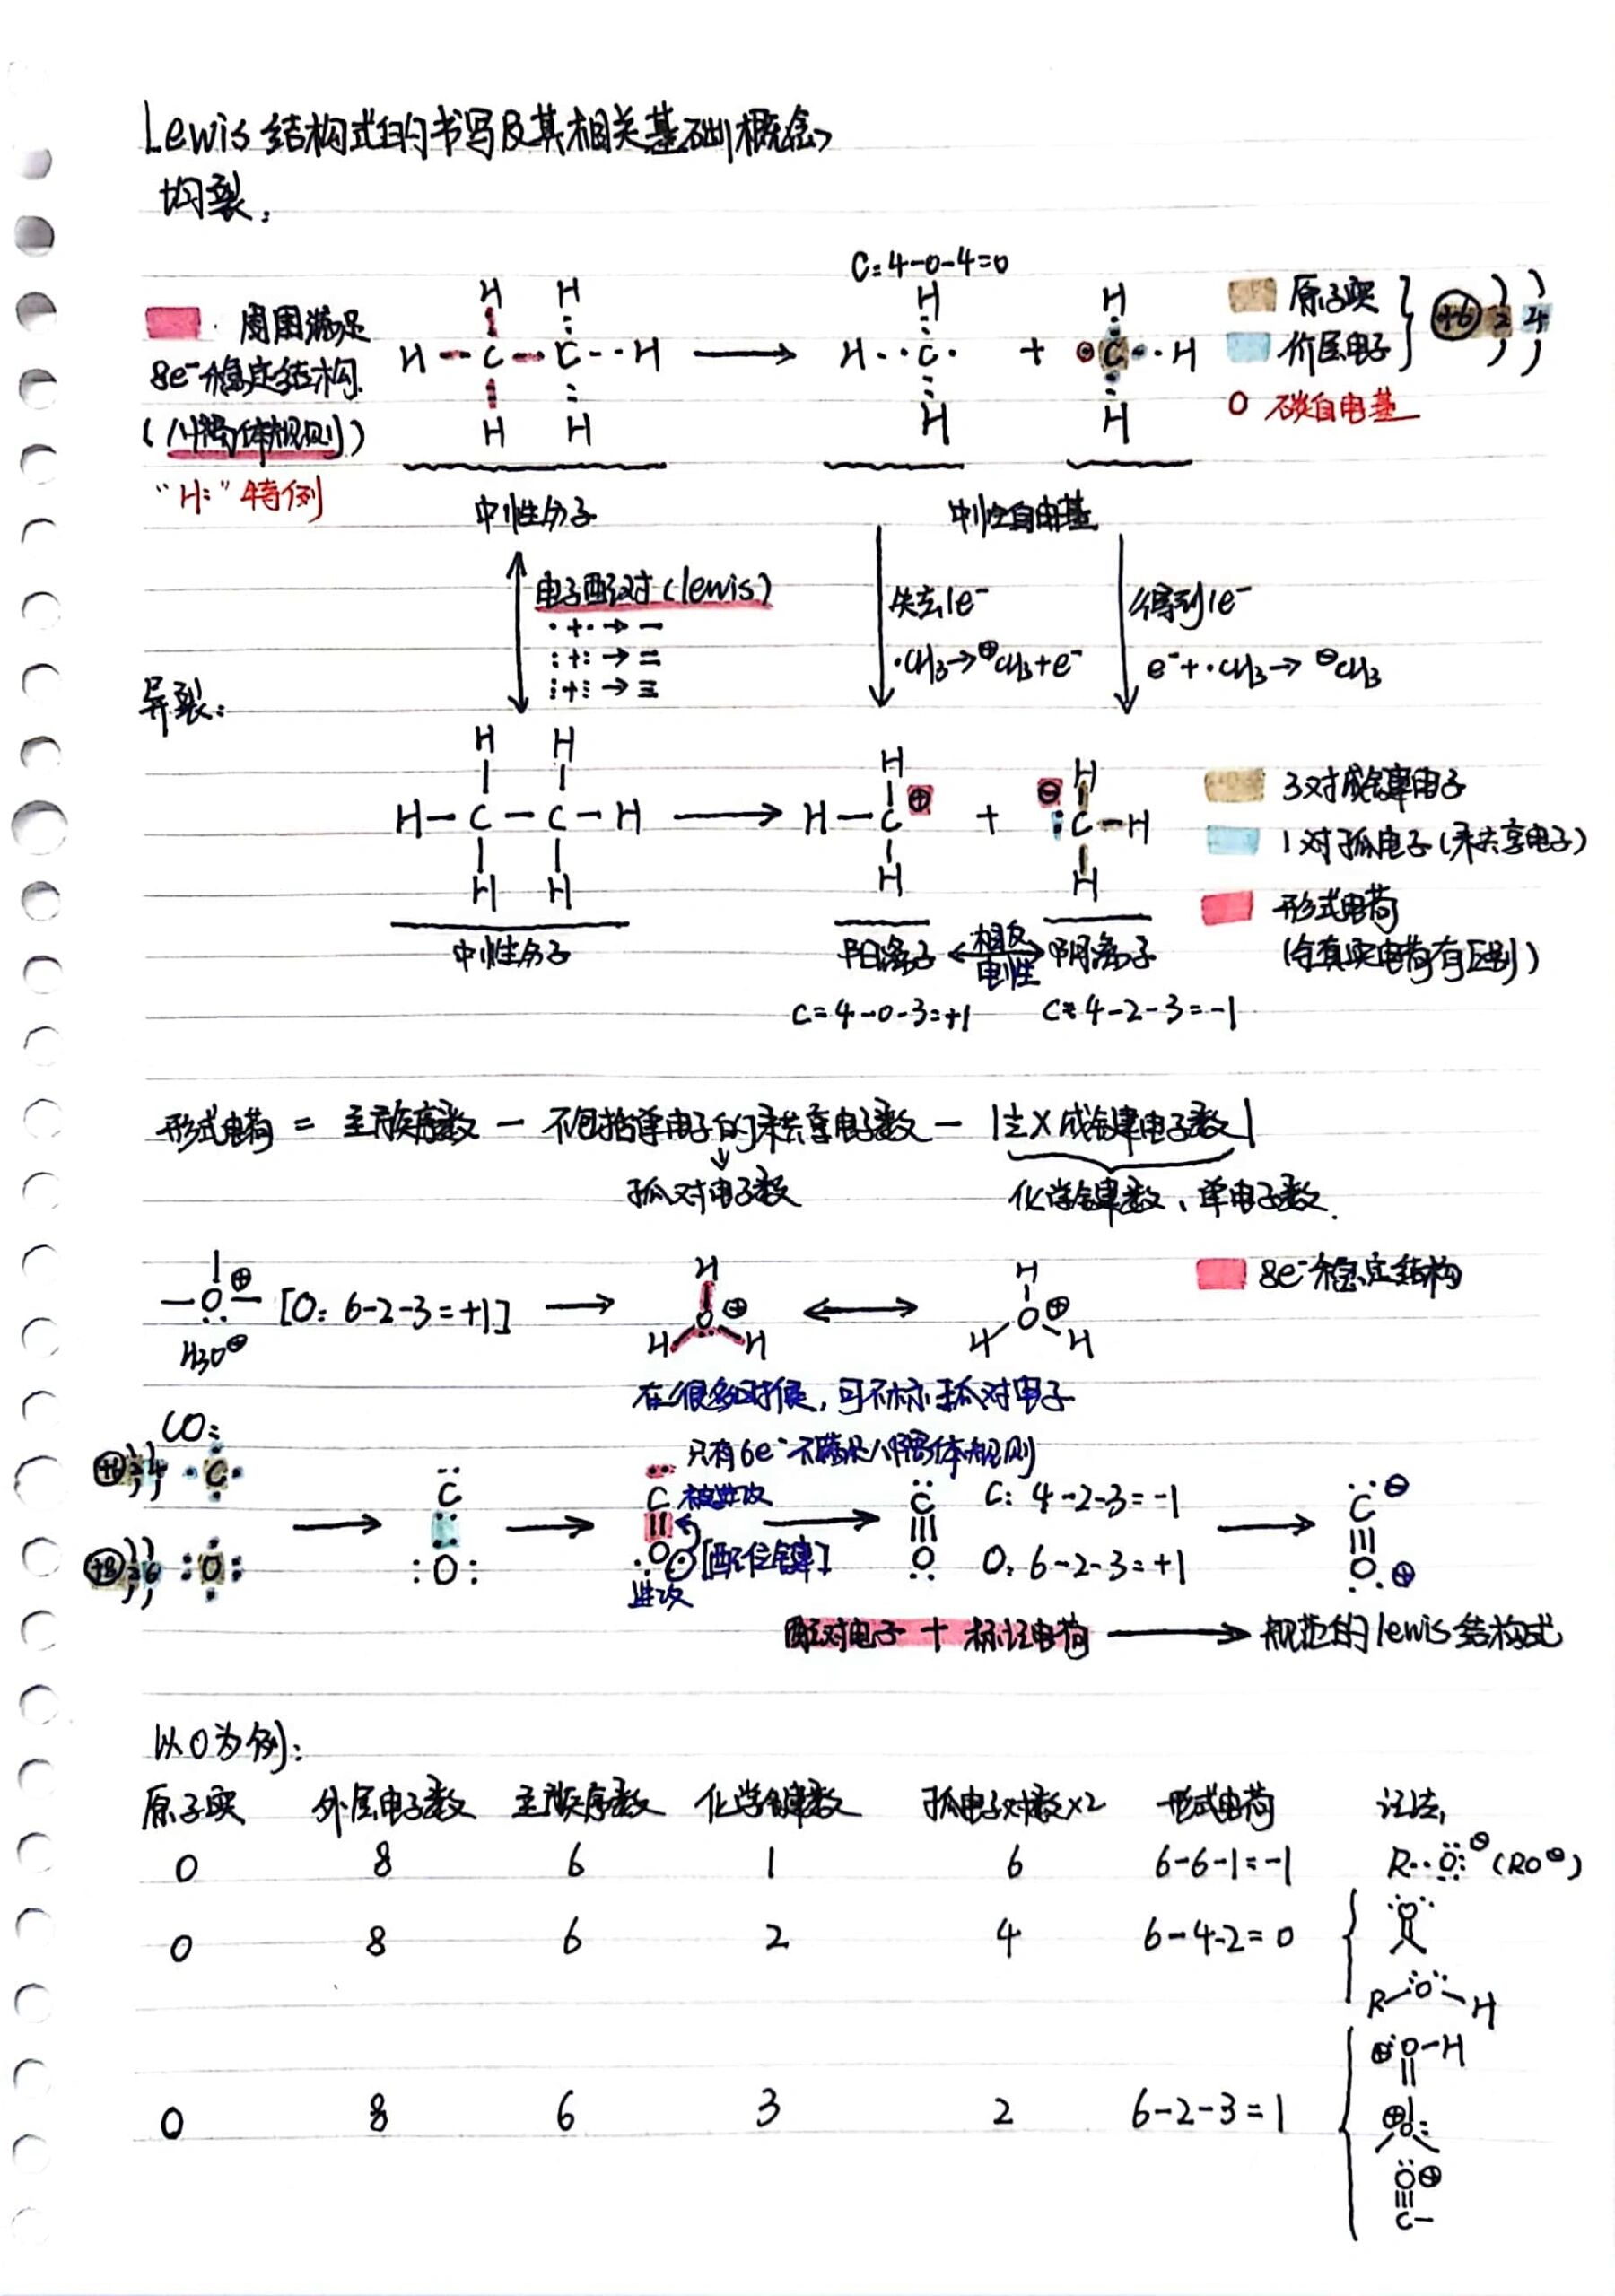 Lewis 结构式的书写及其相关基础概念
均裂:
C: 4-0-4=0
周围满足
8e⁻稳定结构
(八隅体规则)
"H:" 特例
H H
H--C--C--H → H··C· + ·C··H
H H
原子实
价层电子
+6 2 4
O 碳自由基
中性分子
中性自由基
电子配对 (lewis)
·+·→—
:+:→=
⋮+⋮→≡
失去1e⁻
·CH₃→⊕CH₃+e⁻
得到1e⁻
e⁻+·CH₃→ ⊖CH₃
异裂:
H H
H—C—C—H → H—C⊕ + ⊖:C—H
H H
3对成键电子
1对孤电子(未共享电子)
形式电荷
(与真实电荷有区别)
中性分子
阳离子 ←相反电性→ 阴离子
C=4-0-3=+1
C=4-2-3=-1
形式电荷 = 主族序数 - 不包括单电子的未共享电子数 - |½×成键电子数|
孤对电子数
化学键数、单电子数.
—O—⊕ [O: 6-2-3=+1] → H O H H ⊕ ↔ H O H H ⊕
H₃O⊕
8e⁻稳定结构
在很多时候,可不标孤对电子
CO:
只有6e⁻不满足八隅体规则
+6 2 4 ·C·
被进攻
C: 4-2-3=-1
+8 2 6 :O:
[配位键]
O: 6-2-3=+1
进攻
配对电子 + 标注电荷 → 规范的lewis结构式
以O为例:
原子实 外层电子数 主族序数 化学键数 孤电子对数×2 形式电荷 记法
O 8 6 1 6 6-6-1=-1 R··O:⊖ (RO⊖)
O 8 6 2 4 6-4-2=0 O
R—O—H
⊕O—H
O 8 6 3 2 6-2-3=1 ⊕O:
O⊕
≡
C—